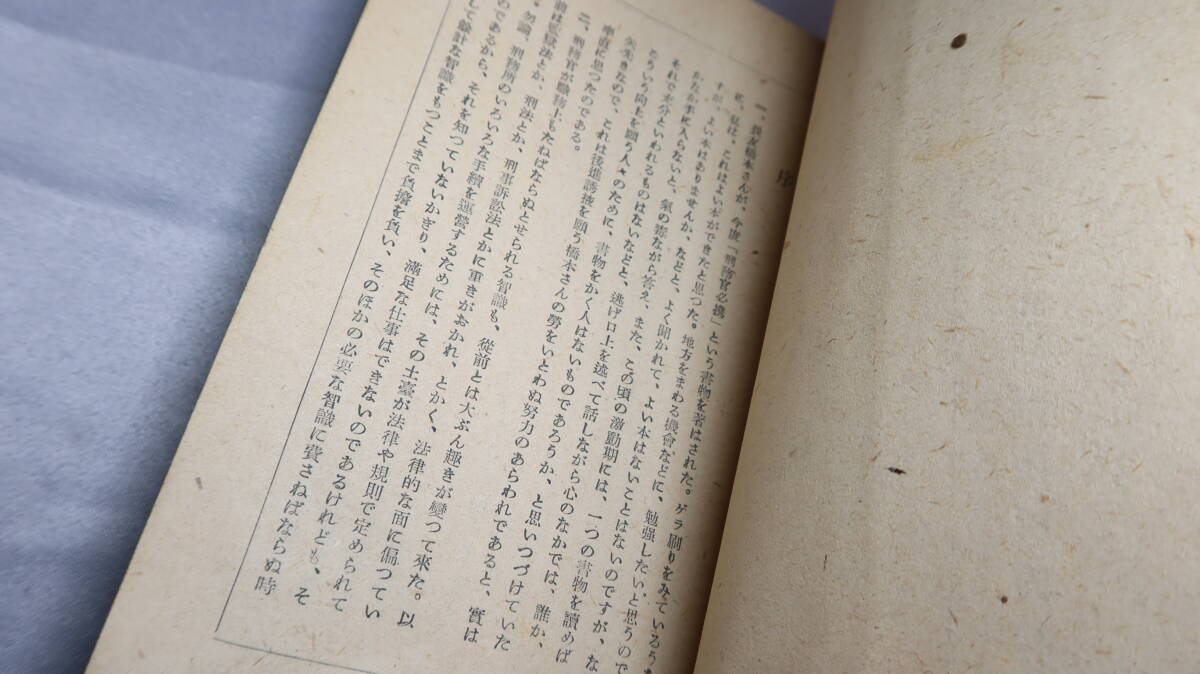 序
一、我友橋本さんが、今度「刑務官必携」という書物を著はされた。ゲラ刷りをみているう
に、私は、これはよい本ができたと思つた。地方をまわる機會などに、勉强したいと思うので
すが、よい本はありませんか、などと、よく聞かれて、よい本はないことはないのですが、な
かなか手に入らないと、氣の毒ながら答え、また、この頃の激動期には、一つの書物を讀めば
それで充分といわれるものはないなどと、逃げ口上を述べて話しながら心のなかでは、誰か、
こういう向上を願う人々のために、書物をかく人はないものであろうか、と思いつづけていた
矢先きなので、これは後進誘掖を願う橋本さんの勞をいとわぬ努力のあらわれであると、實は
率直に思つたのである。
二、刑務官が職務上もたねばならぬとせられる智識も、從前とは大ぶん趣きが變つて來た。以
前は監獄法とか、刑法とか、刑事訴訟法とかに重きがおかれ、とかく、法律的な面に偏つてい
勿論、刑務所のいろいろな手續を運營するためには、その土臺が法律や規則で定められて
のであるから、それを知つていないかぎり、滿足な仕事はできないのであるけれども、そ
して餘計な智識をもつことまで負擔を負い、そのほかの必要な智識に費さねばならぬ時